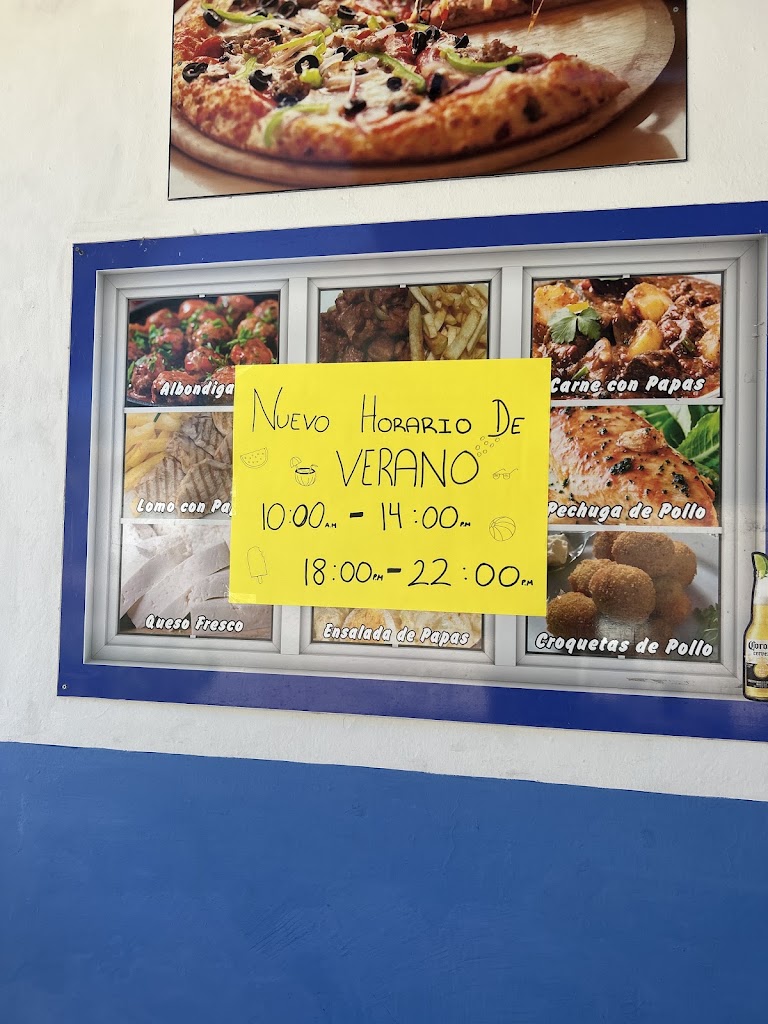 Albondiga
Carne con Papas
NUEVO HORARIO DE
VERANO
10:00 A.M - 14:00 P.M
18:00 P.M - 22:00 P.M
Lomo con Pa
Pechuga de Pollo
Queso Fresco
Ensalada de Papas
Croquetas de Pollo